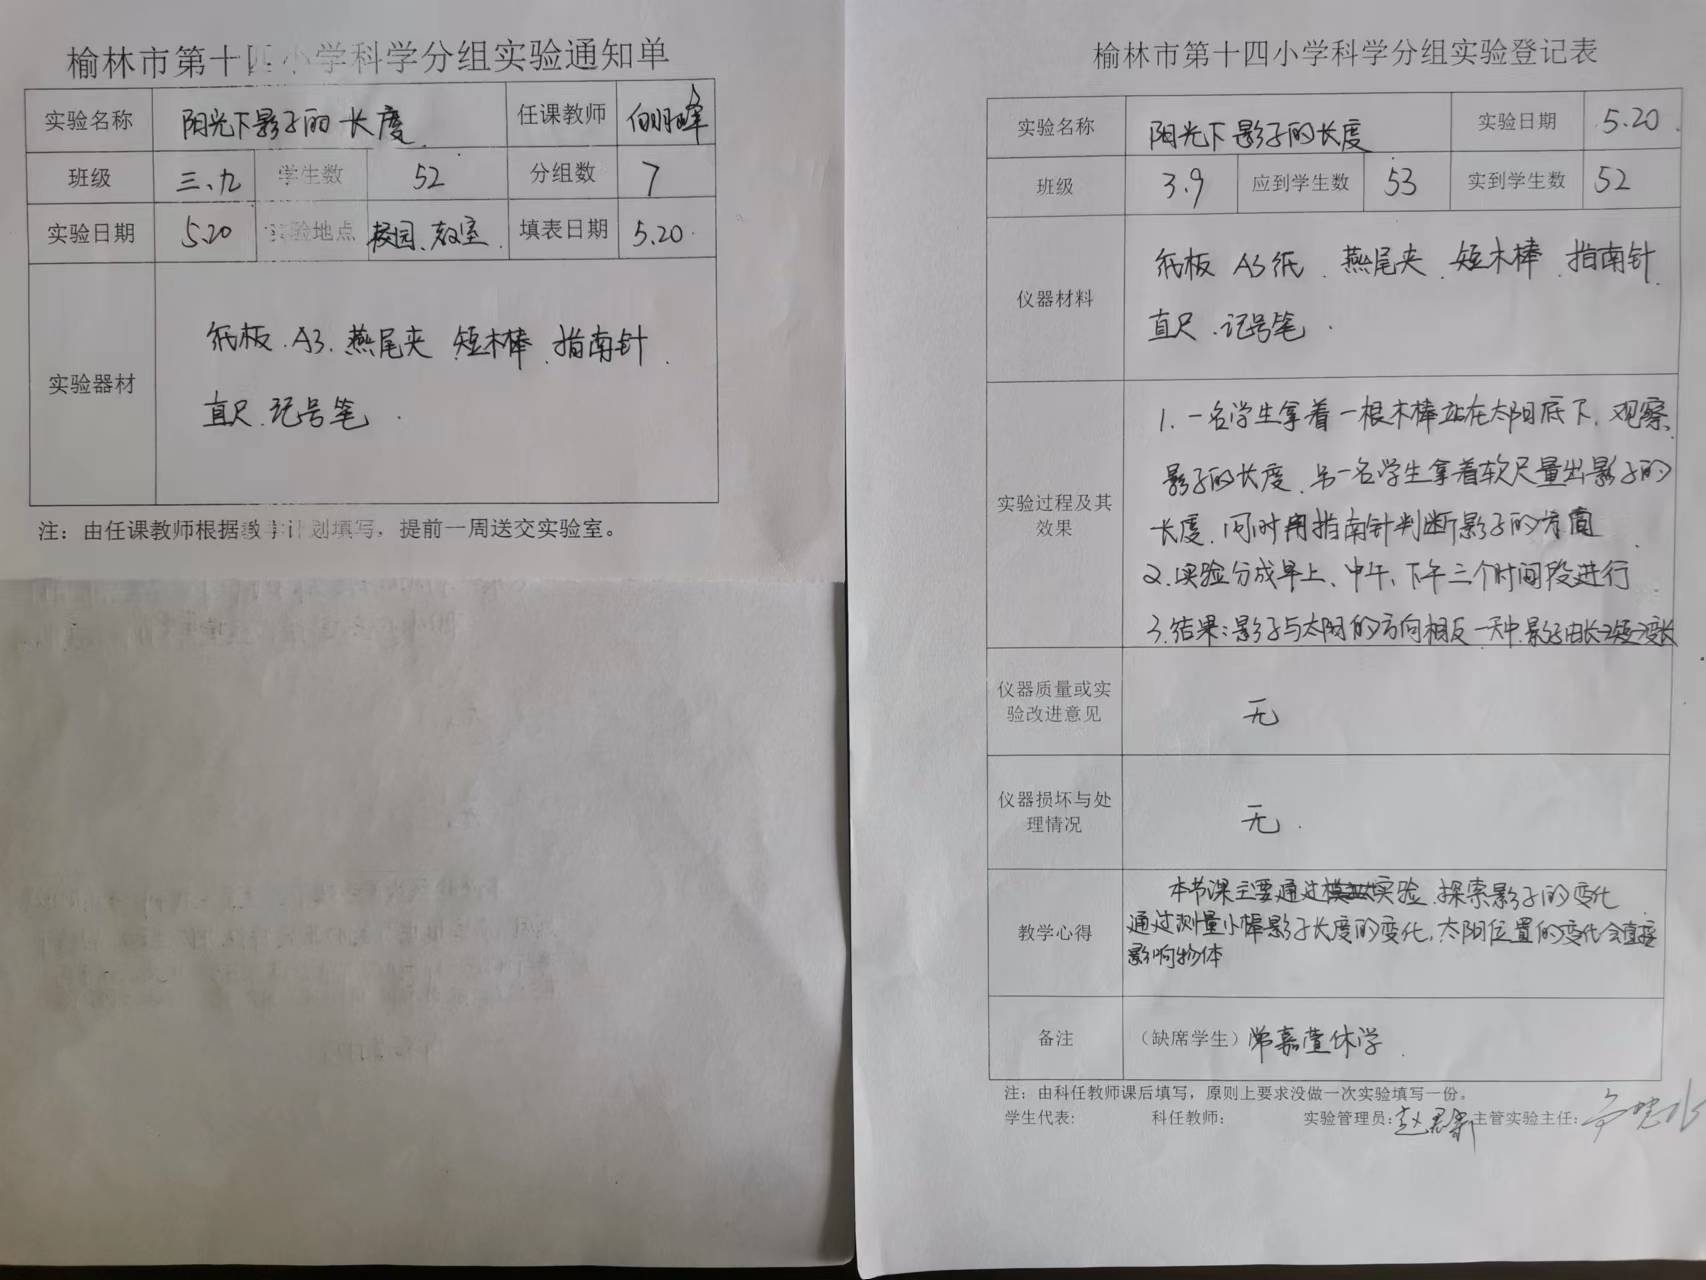 榆林市第十四小学科学分组实验通知单
实验名称 阳光下影子的长度 任课教师
班级 三、九 学生数 52 分组数 7
实验日期 5.20 实验地点 校园、教室 填表日期 5.20
实验器材
纸板、A3、燕尾夹、短木棒、指南针
直尺、记号笔
注：由任课教师根据教学计划填写，提前一周送交实验室。
榆林市第十四小学科学分组实验登记表
实验名称 阳光下影子的长度 实验日期 5.20
班级 3.9 应到学生数 53 实到学生数 52
仪器材料
纸板 A3纸、燕尾夹、短木棒、指南针
直尺、记号笔.
实验过程及其
效果
1. 一名学生拿着一根木棒站在太阳底下，观察
影子的长度、另一名学生拿着软尺量出影子的
长度，同时用指南针判断影子的方向
2. 实验分成早上、中午、下午三个时间段进行
3. 结果：影子与太阳的方向相反一天中，影子由长→短→变长
仪器质量或实
验改进意见
无
仪器损坏与处
理情况
无.
教学心得
本节课主要通过实验，探索影子的变化
通过测量小棒影子长度的变化，太阳位置的变化会直接
影响物体
备注 （缺席学生）常嘉萱休学
注：由科任教师课后填写，原则上要求没做一次实验填写一份。
学生代表： 科任教师： 实验管理员： 主管实验主任：